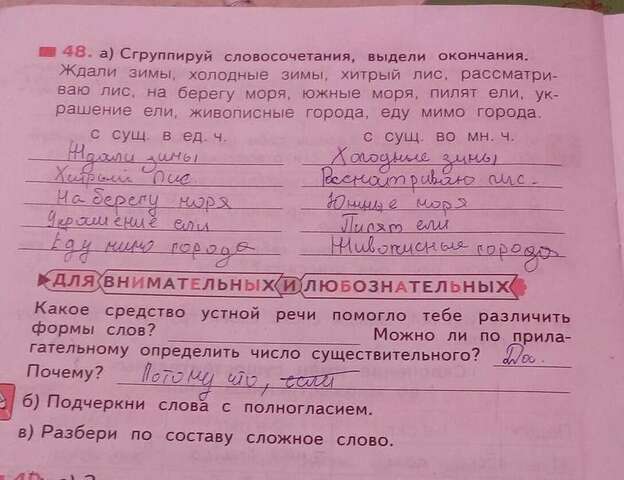 48. а) Сгруппируй словосочетания, выдели окончания.
Ждали зимы, холодные зимы, хитрый лис, рассматри-
ваю лис, на берегу моря, южные моря, пилят ели, ук-
рашение ели, живописные города, еду мимо города.
с сущ. в ед. ч. с сущ. во мн. ч.
Ждали зимы Холодные зимы
Хитрый лис Рассматриваю лис.
На берегу моря Южные моря
Украшение ели Пилят ели
Еду мимо города Живописные города
ДЛЯ ВНИМАТЕЛЬНЫХ И ЛЮБОЗНАТЕЛЬНЫХ
Какое средство устной речи помогло тебе различить
формы слов? Можно ли по прила-
гательному определить число существительного? Да.
Почему? Потому что, если
б) Подчеркни слова с полногласием.
в) Разбери по составу сложное слово.